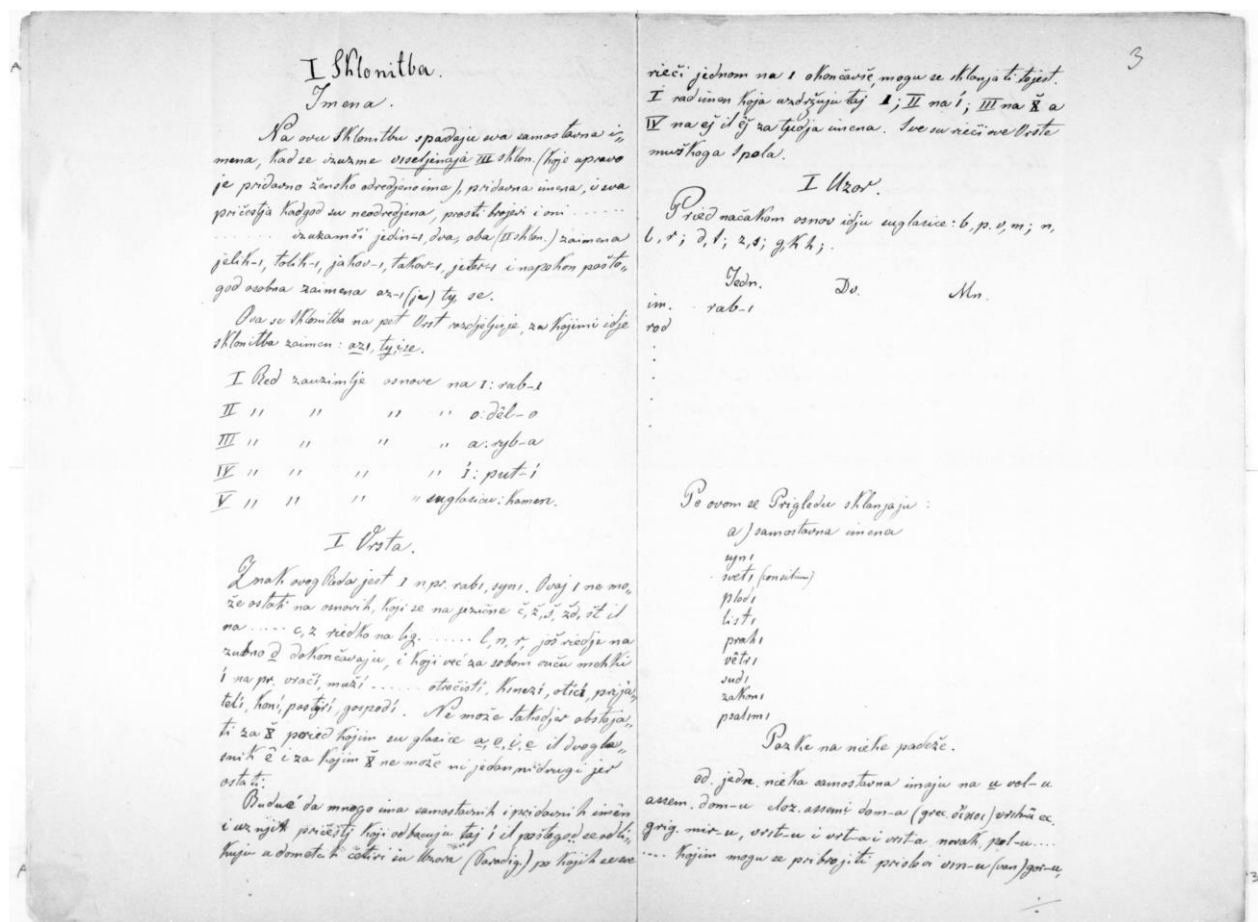 I Sklonitba.
Imena.
Na ovu Sklonitbu spadaju sva samostavna i„
mena, kad se izuzme vsseljenaja III sklon. (koje upravo
je pridavno žensko odredjeno ime), pridavna imena, i sva
pričestja kadgod su neodredjena, prosti brojevi i oni ......
............ izuzamši jedin-ı, dva, oba (II sklon.) zaimena
jelik-ı, tolik-ı, jakov-ı, takov-ı, jeter-ı i napokon pošto„
god osobna zaimena az-ı (ja) ty, se.
Ova se Sklonitba na pet Vrst razdjeljuje, za kojimi idje
sklonitba zaimen: azı, ty, i se.
I Red zauzimlje osnove na ı: rab-ı
II " " " " o: děl-o
III " " " " a: ryb-a
IV " " " " í: put-í
V " " " " suglasicu: kamen.
I Vrsta.
Znak ovog Reda jest ı n.pr. rabı, synı. Ovaj ı ne mo„
že ostati na osnovih, koji se na jezične č, ž, š, žd, št il
na ..... c, z riedko na bg. ....... l, n, r, još riedje na
zubno d dokončavaju, i koji već za sobom vuču mehki
í na pr. vračí, muží ....... otročistí, knezí, otící, prija„
telí, koní, pastyrí, gospodí. Ne može takodjer obstoja„
ti za X̆ pored kojim su glasice a, o, i, e il dvogla„
snik ê i za kojim X̆ ne može ni jedan ni drugi jer
ostati.
Buduć da mnogo ima samostavnih i pridavnih imen
i uz njih pričestj koji odbacuju taj í il poštogod se odli„
kuju a dometati četiri su Uzora (Paradig.) po kojih se sve
3
rieči jednom na ı okončavše, mogu se sklanjati tojest.
I rad imen koja uzdržuju taj ı; II na í; III na X̆ a
IV na ej il ěj za tudja imena. Sve su rieči ove Vrste
muškoga Spola.
I Uzor.
Pried načakom osnov idju suglasice: b, p, v, m; n,
l, r; d, t; z, s; g, k h;.
Jedn. Dv. Mn.
im. rab-ı
rod
Po ovom se Prigledu sklanjaju:
a) samostavna imena
synı
svetı (consilium)
plodı
listı
prahı
větrı
sudı
zakonı
psalmı
Pazke na nieke padeže.
od. jedn. nieka samostavna imaju na u vol-u
assem. dom-u cloz. assemi dom-a (grec. οἶκος)
grig. mir-u, vrst-u i vrt-a i vrst-a, pol-u ....
.... kojim mogu se pribrojiti prislovi vın-u (van) gor-u,